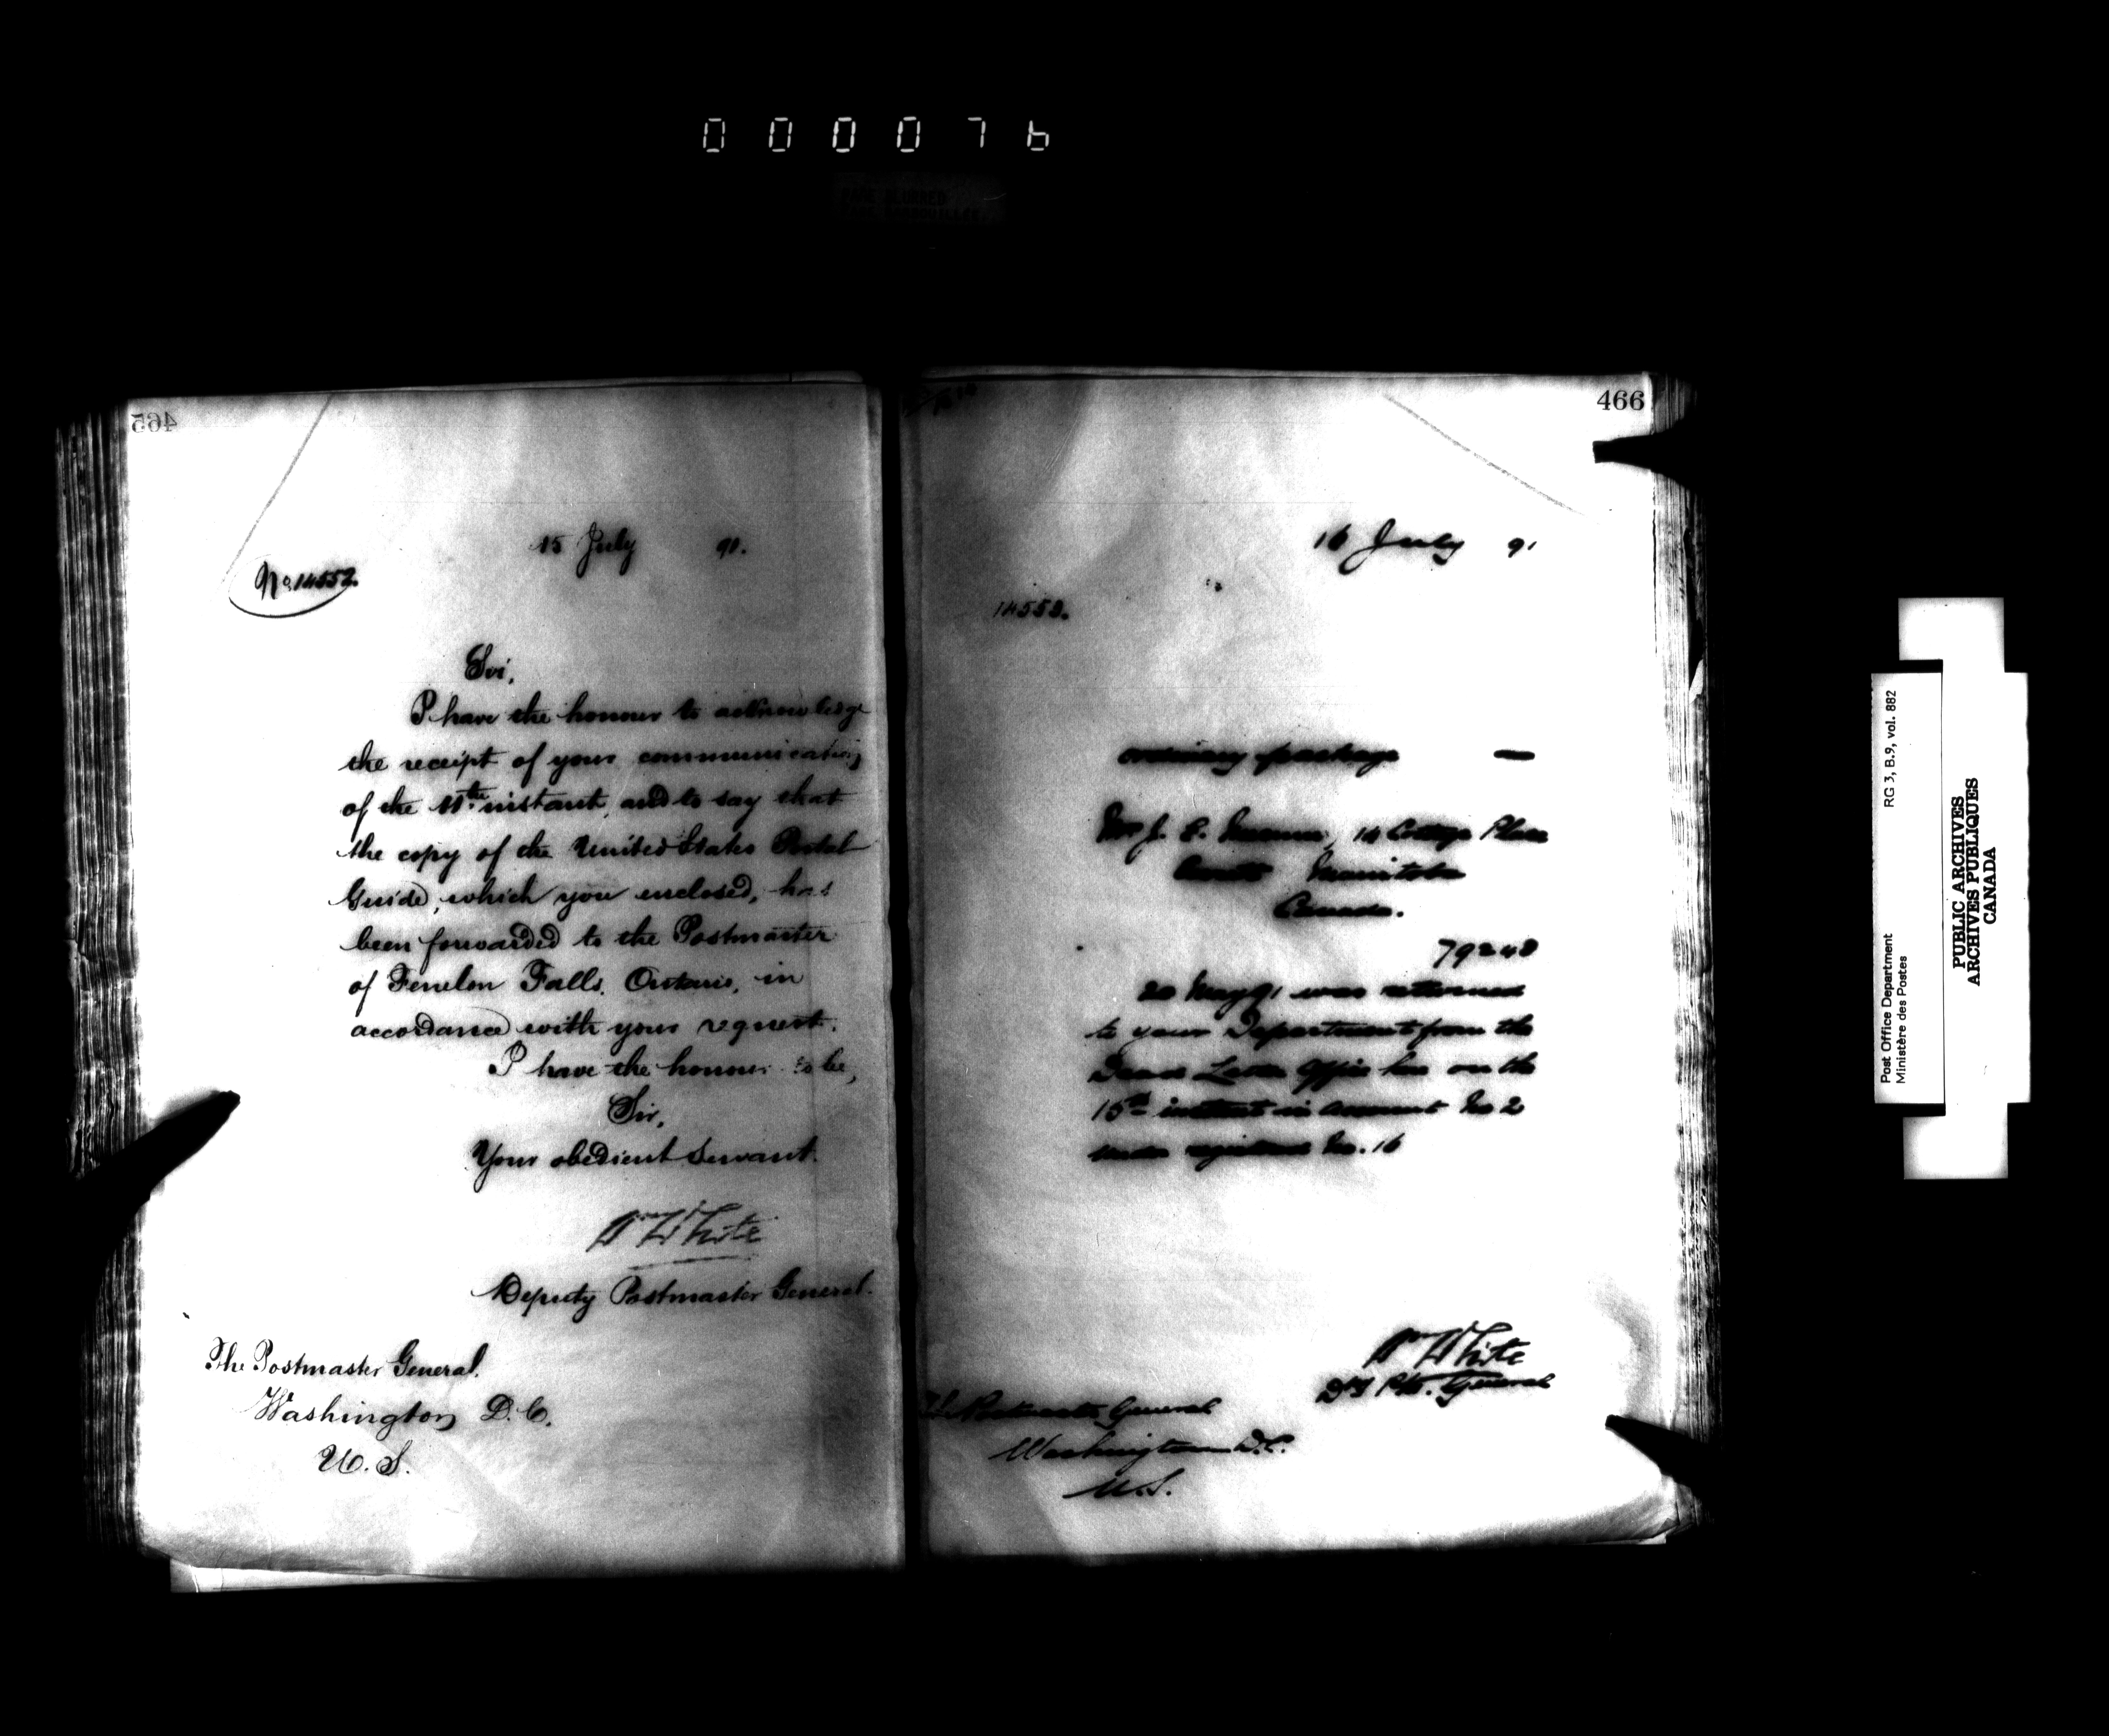 000076
PAGE BLURRED
465
15 July 91.
No 14552.
Sir,
I have the honour to acknowledge
the receipt of your communication
of the 11th instant, and to say that
the copy of the United States Postal
Guide, which you enclosed, has
been forwarded to the Postmaster
of Fenelon Falls, Ontario, in
accordance with your request.
I have the honour to be,
Sir,
Your obedient Servant.
Wm White
Deputy Postmaster General.
The Postmaster General.
Washington D.C.
U.S.
466
16 July 91
14553.
ordinary package —
J. E. 14 Cottage Place
Manitoba
Canada.
79248
20 May 91 was returned
to your Department from the
Dead Letter Office here on the
15th instant in account No 2
under registered No. 16
Wm White
Dy P.M. General
The Postmaster General
Washington D.C.
U.S.
Post Office Department RG 3, B.9, vol. 882
Ministère des Postes
PUBLIC ARCHIVES
ARCHIVES PUBLIQUES
CANADA